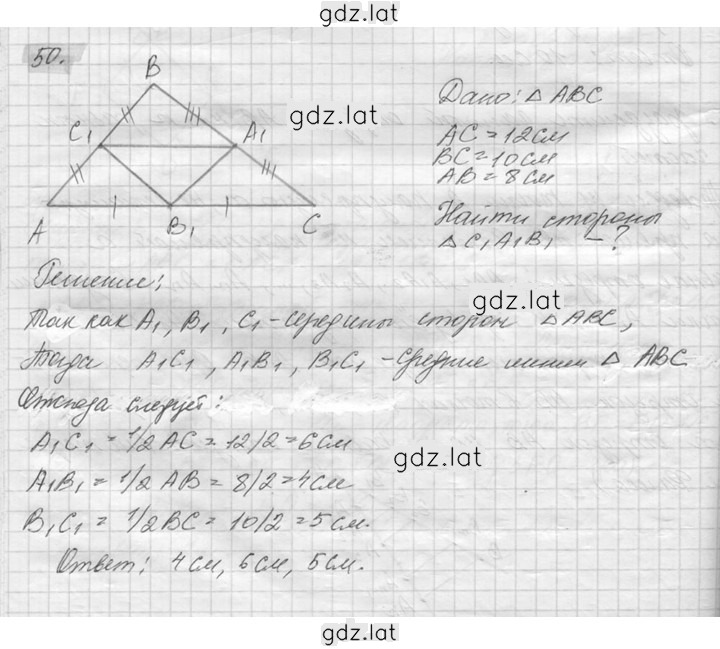 gdz.lat
50.
B
C₁
A₁
A
B₁
C
gdz.lat
Дано: △ ABC
AC = 12см
BC = 10см
AB = 8см
Найти стороны
△ C₁A₁B₁ – ?
Решение:
gdz.lat
Так как A₁, B₁, C₁ - середины сторон △ABC,
Тогда A₁C₁, A₁B₁, B₁C₁ - средние линии △ ABC
Отсюда следует:
A₁C₁ = 1/2 AC = 12/2 = 6см
gdz.lat
A₁B₁ = 1/2 AB = 8/2 = 4см
B₁C₁ = 1/2 BC = 10/2 = 5см.
Ответ: 4см, 6см, 5см.
gdz.lat